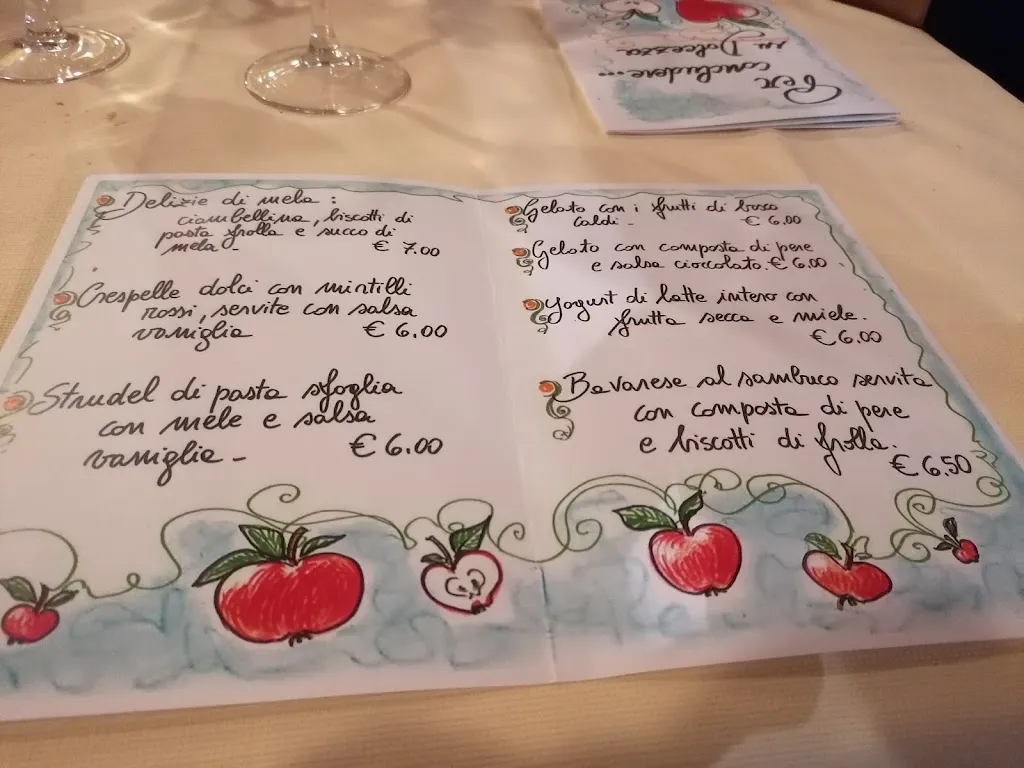 Delizie di mela :
ciambellina, biscotti di
pasta frolla e succo di
mela -
€ 7.00
Crespelle dolci con mirtilli
rossi, servite con salsa
vaniglia
€ 6.00
Strudel di pasta sfoglia
con mele e salsa
vaniglia -
€ 6.00
Gelato con i frutti di bosco
caldi -
€ 6.00
Gelato con composta di pere
e salsa cioccolato. € 6.00
Yogurt di latte intero con
frutta secca e miele.
€ 6.00
Bavarese al sambuco servita
con composta di pere
e biscotti di frolla.
€ 6.50
Per
concludere...
in Dolcezza